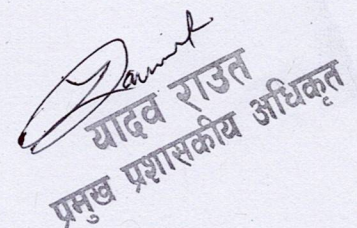 यादव राउत
प्रमुख प्रशासकीय अधिकृत